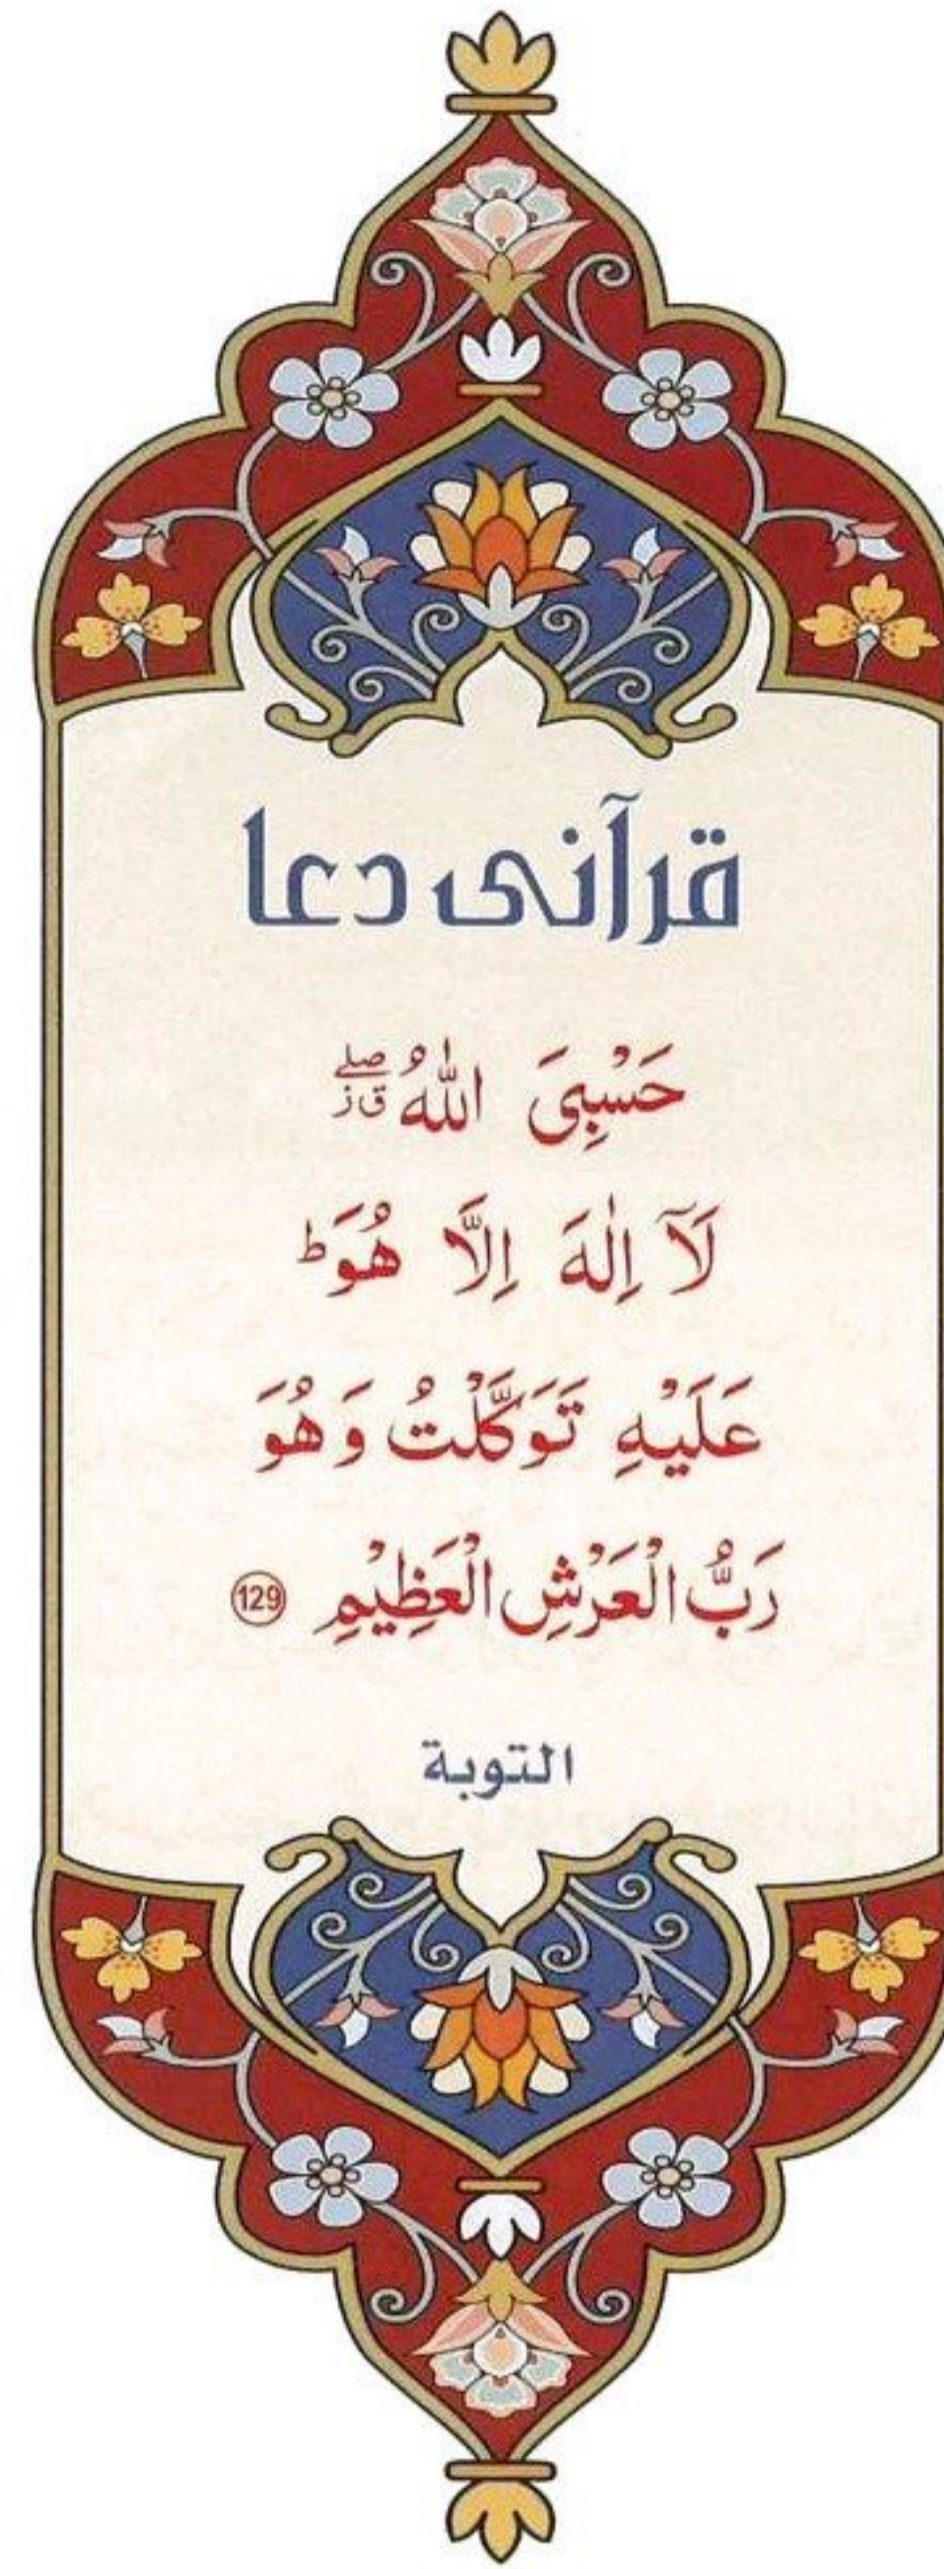 قرآنی دعا
حَسْبِیَ اللّٰهُ ۖق ز
لَاۤ اِلٰهَ اِلَّا هُوَ ؕ
عَلَیْهِ تَوَكَّلْتُ وَهُوَ
رَبُّ الْعَرْشِ الْعَظِیْمِ 129
التوبة